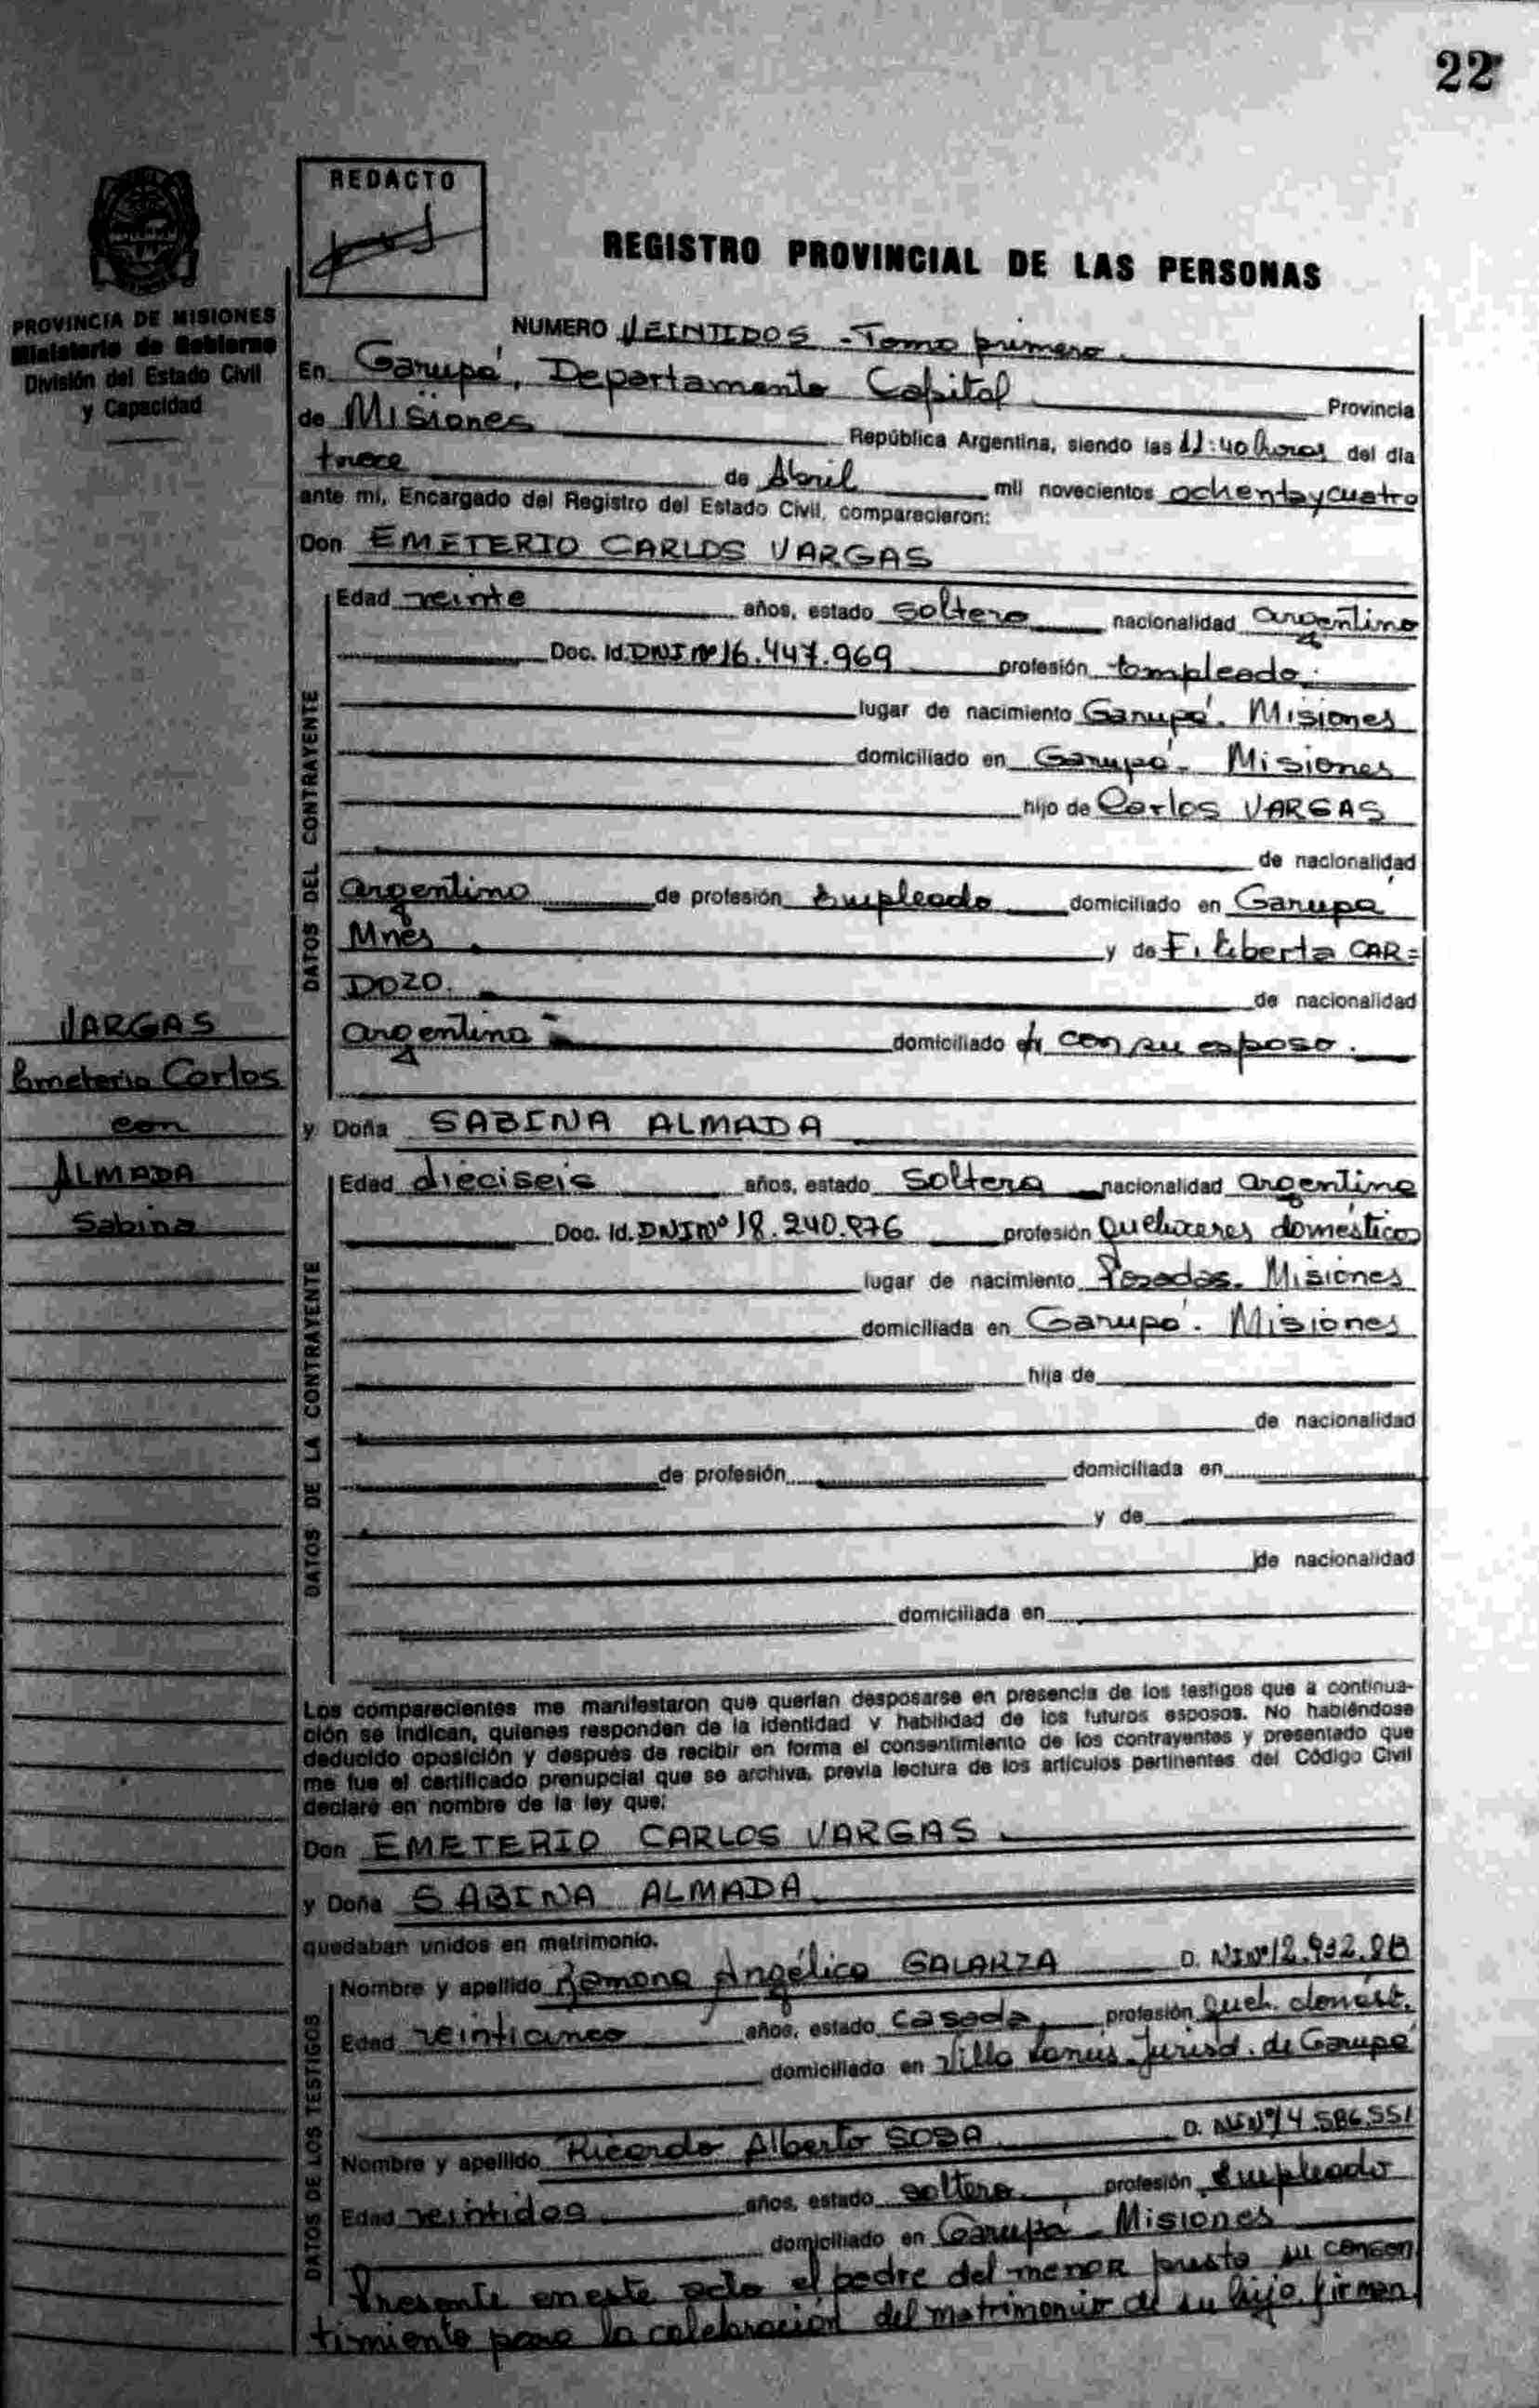 22
REDACTO
REGISTRO PROVINCIAL DE LAS PERSONAS
PROVINCIA DE MISIONES
Ministerio de Gobierno
División del Estado Civil
y Capacidad
NUMERO VEINTIDOS - Tomo primero.
En Garupá, Departamento Capital Provincia
de Misiones República Argentina, siendo las 11:40 horas del día
trece de Abril mil novecientos ochenta y cuatro
ante mí, Encargado del Registro del Estado Civil, comparecieron:
Don EMETERIO CARLOS VARGAS
DATOS DEL CONTRAYENTE
Edad veinte años, estado soltero nacionalidad argentino
Doc. Id. DNI Nº 16.447.969 profesión empleado.
lugar de nacimiento Garupá. Misiones
domiciliado en Garupá - Misiones
hijo de Carlos VARGAS
de nacionalidad
argentino de profesión Empleado domiciliado en Garupá
Mnes. y de Filiberta CAR=
DOZO. de nacionalidad
argentina - domiciliado con su esposo.
VARGAS
Emeterio Carlos
con
ALMADA
Sabina
y Doña SABINA ALMADA
DATOS DE LA CONTRAYENTE
Edad dieciseis años, estado Soltera nacionalidad argentina
Doc. Id. DNI Nº 18.240.876 profesión Quehaceres domésticos
lugar de nacimiento Posadas. Misiones
domiciliada en Garupá. Misiones
hija de
de nacionalidad
de profesión domiciliada en
y de
de nacionalidad
domiciliada en
Los comparecientes me manifestaron que querían desposarse en presencia de los testigos que a continua-
ción se indican, quienes responden de la identidad y habilidad de los futuros esposos. No habiéndose
deducido oposición y después de recibir en forma el consentimiento de los contrayentes y presentado que
me fue el certificado prenupcial que se archiva, previa lectura de los artículos pertinentes del Código Civil
declaré en nombre de la ley que:
Don EMETERIO CARLOS VARGAS.
y Doña SABINA ALMADA
quedaban unidos en matrimonio.
DATOS DE LOS TESTIGOS
Nombre y apellido Ramona Angélica GALARZA D.NI Nº
Edad veinticinco años, estado casada, profesión Queh. domést.
domiciliado en Villa Lanús. Jurisd. de Garupá
Nombre y apellido Ricardo Alberto SOSA D. NI Nº 14.586.551
Edad veintidos años, estado soltero. profesión Empleado
domiciliado en Garupá - Misiones
Presente en este acto el padre del menor presta su consen
timiento para la celebración del matrimonio de su hijo, firman